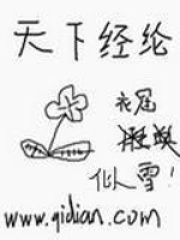 天下经纶
衣冠
似雪!
www.qidian.com